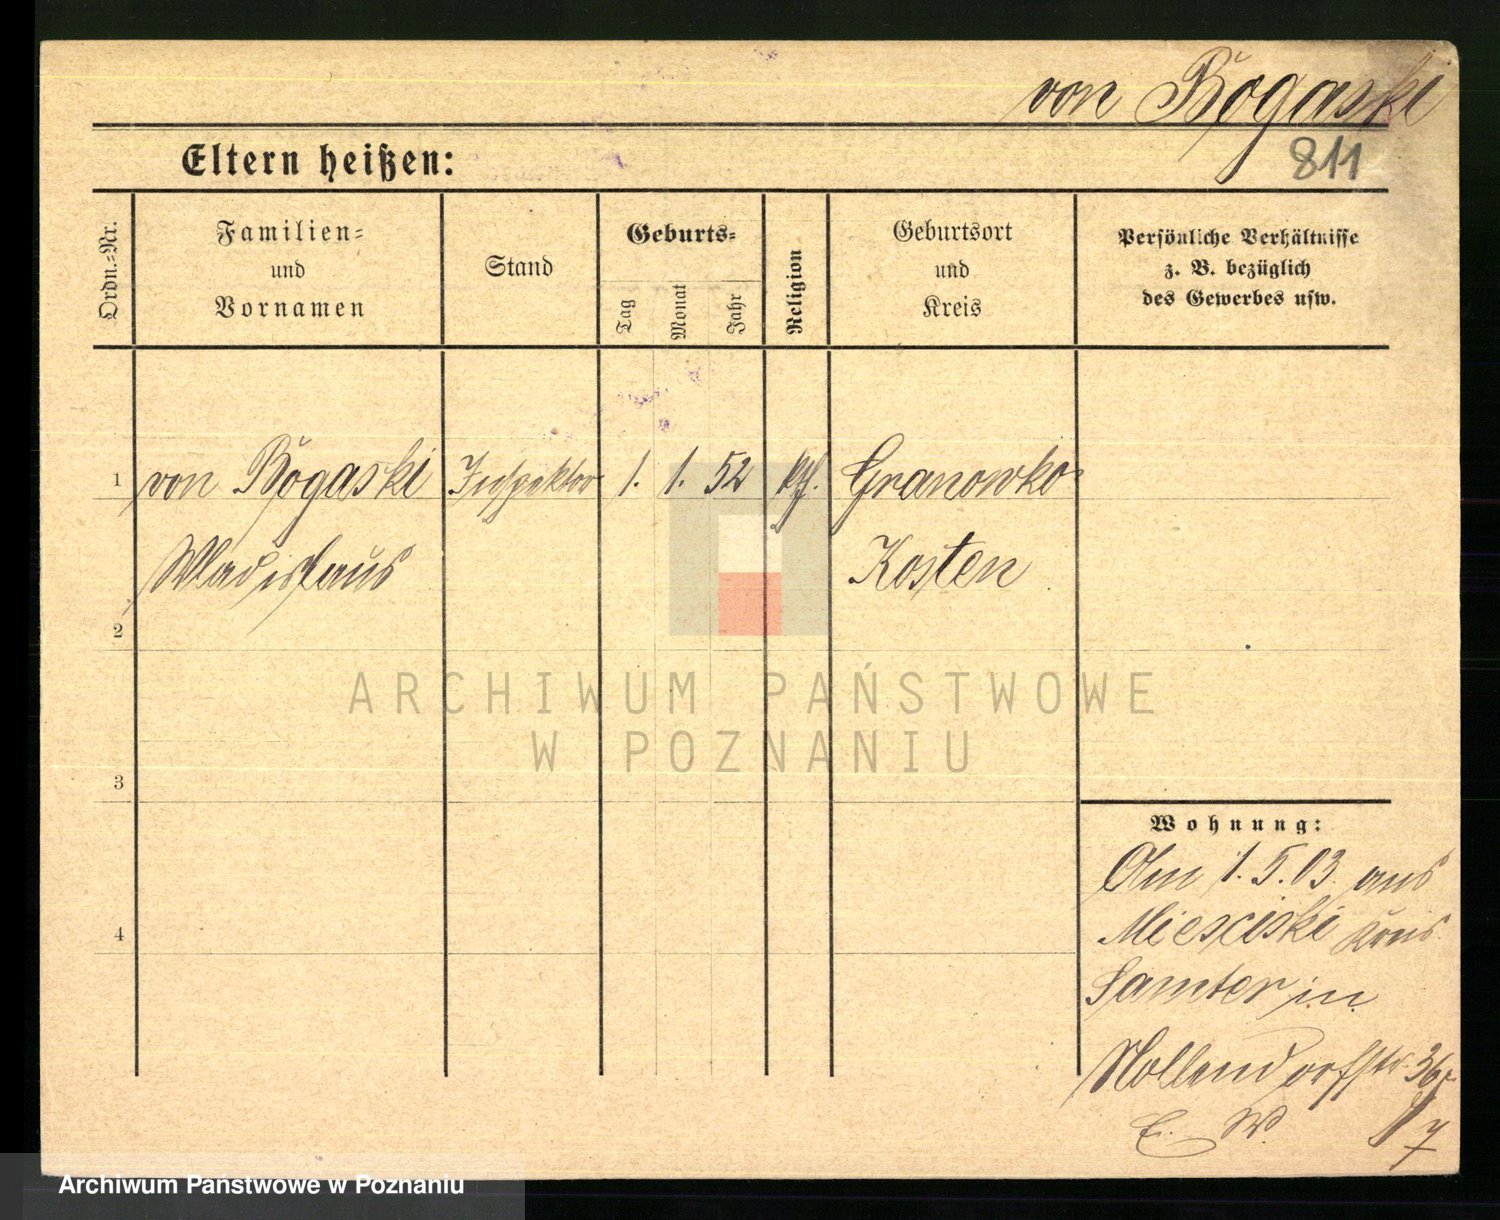 von Bogaski
Eltern heißen:
811
Ordn.-Nr.
Familien-
und
Vornamen
Stand
Geburts-
Tag
Monat
Jahr
Religion
Geburtsort
und
Kreis
Persönliche Verhältnisse
z. B. bezüglich
des Gewerbes usw.
1 von Bogaski Inspektor 1. 1. 52 kth. Granowko
Wladislaus Kosten
2
ARCHIWUM PAŃSTWOWE
W POZNANIU
3
Wohnung:
Am 1. 5. 03. aus
Miesciski Kreis
4
Samter in
Nollendorfstr. 36
E. W.
7
Archiwum Państwowe w Poznaniu